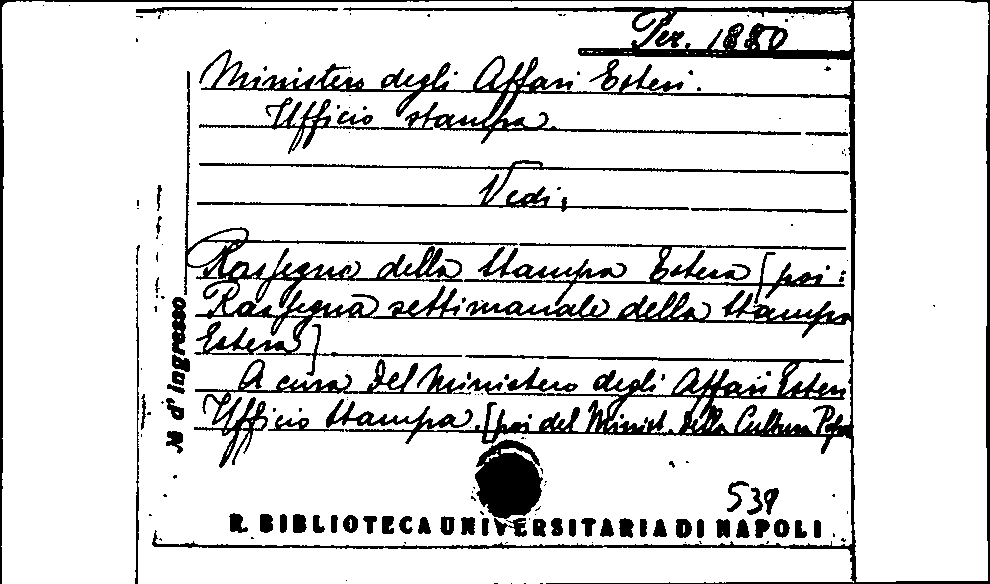 Per. 1880
Ministero degli Affari Esteri.
Ufficio stampa.
Vedi:
Rassegna della Stampa Estera [poi:
Rassegna settimanale della Stampa
Estera]
A cura del Ministero degli Affari Esteri
Ufficio Stampa. [poi del Minist. della Cultura Pop
539
N. d'ingresso
R. BIBLIOTECA UNIVERSITARIA DI NAPOLI